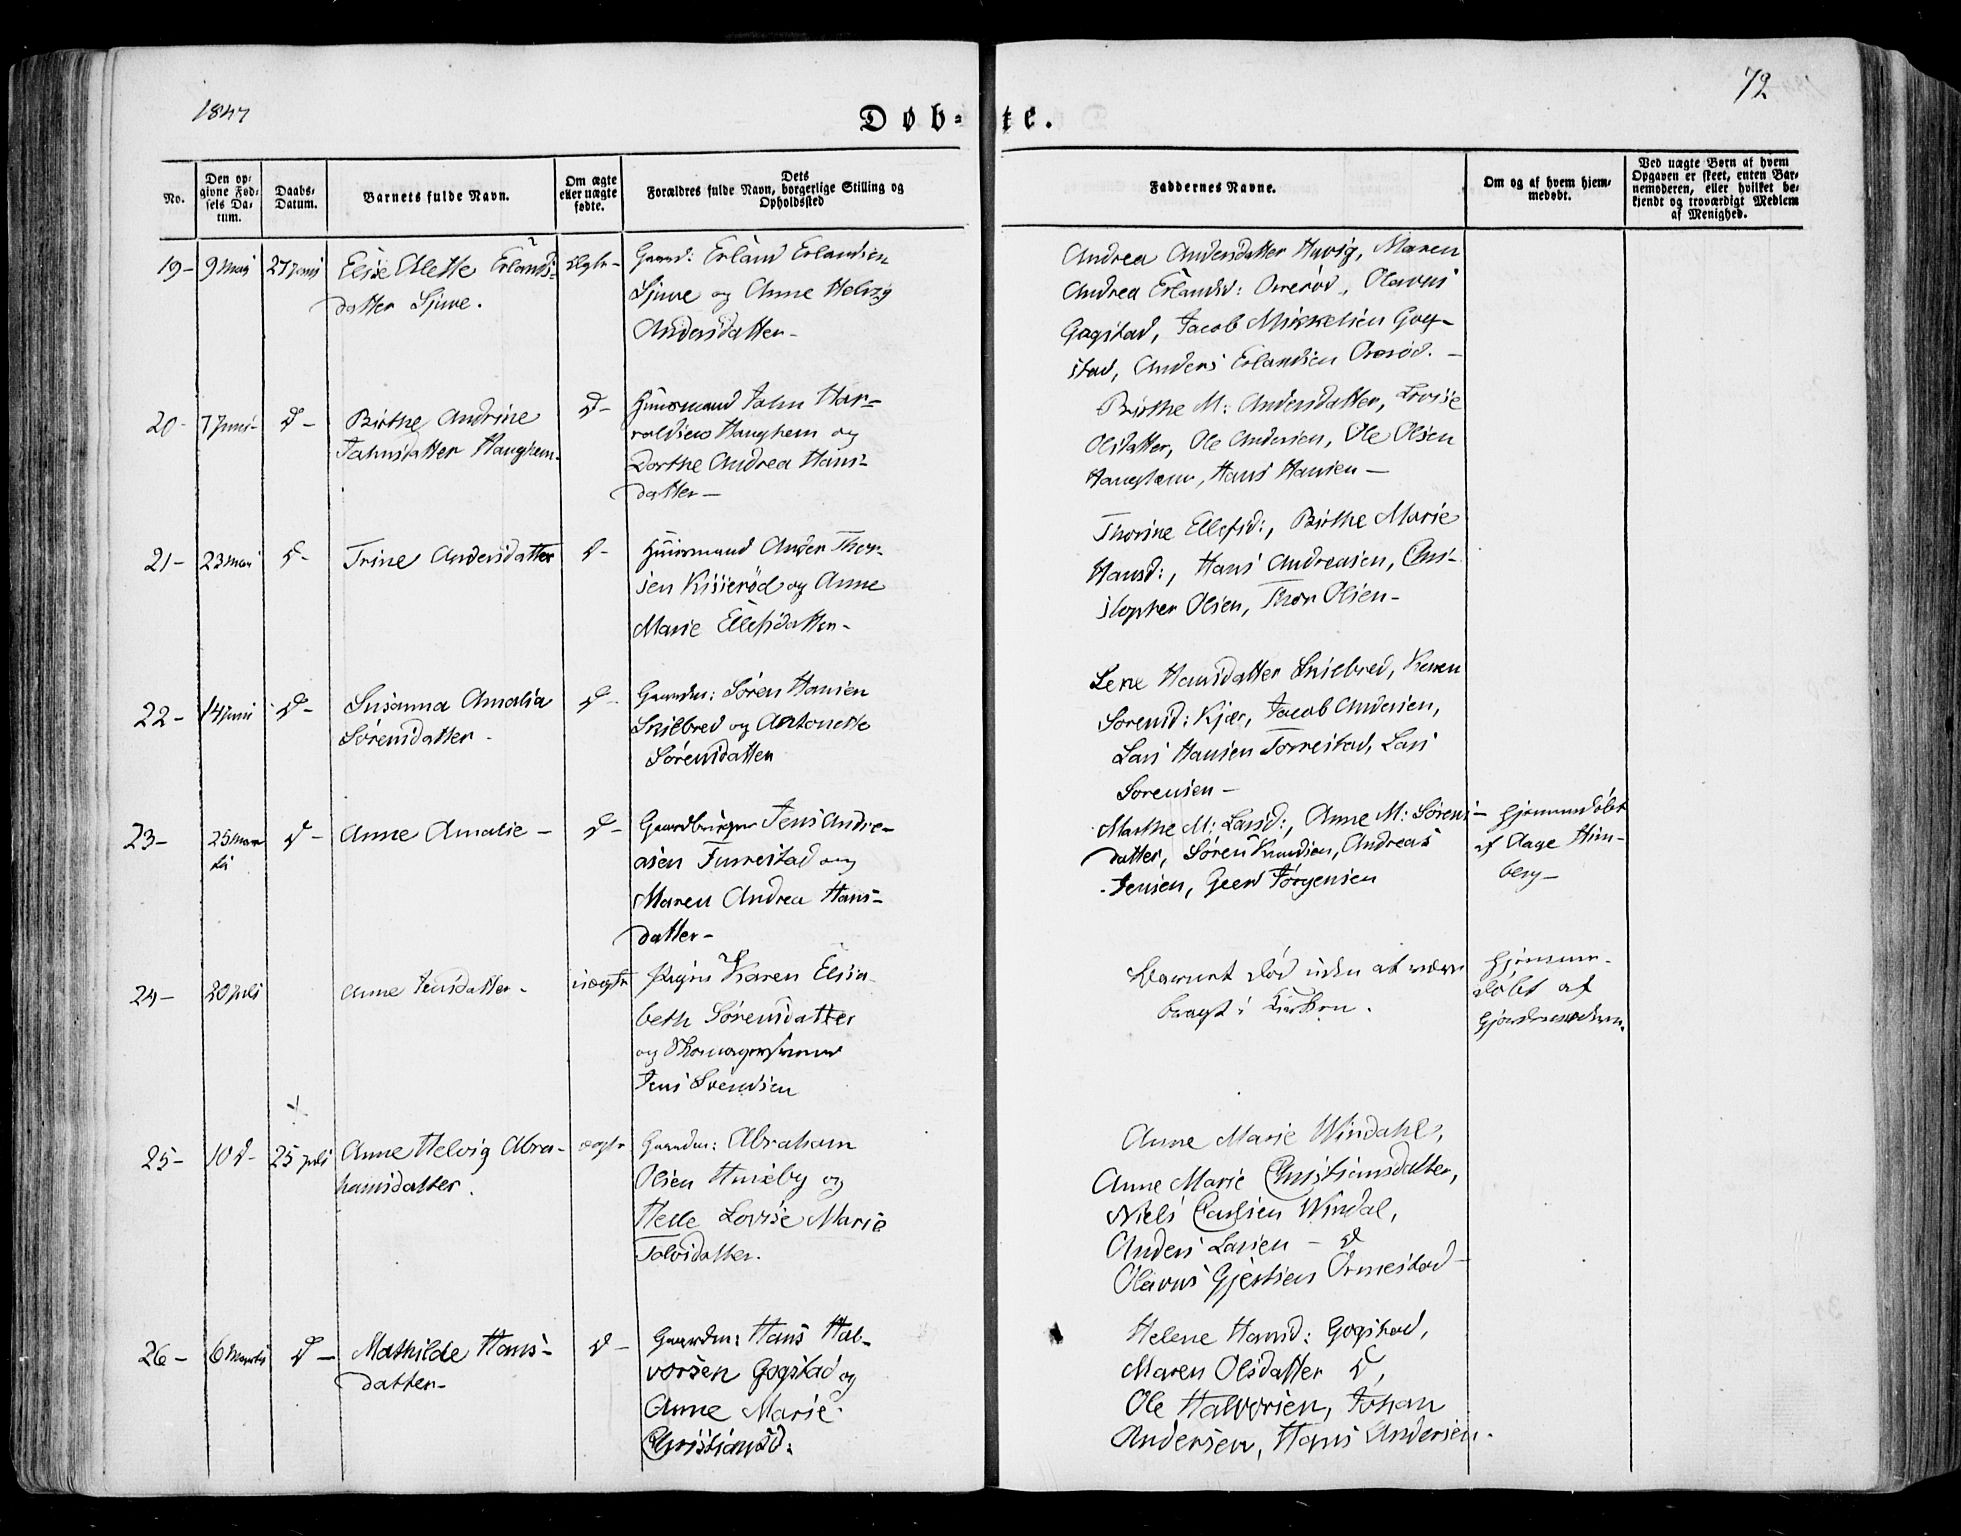 1847
72
Døb-
te.
No.
Den op-
givne Fød-
sels Da-
tum.
Daabs-
Datum.
Barnets fulde Navn.
Om ægte
eller uægte
fødte.
Dets
Forældres fulde Navn, borgerlige Stilling og
Opholdssted
Faddernes Navne.
Om og af hvem hjem-
medøbt.
Ved uægte Børn af hvem
Opgaven er skeet, enten Bar-
nemoderen, eller hvilket be-
kjendt og troværdigt Medlem
af Menighed.
19-
9 Maj
27 Juni
Elise Alette Erlands-
datter Sjuve.
Ægte-
Gaard: Erland Erlandsen
Sjuve og Anne Helvig
Andersdatter-
Andrea Andersdatter Huvig, Maren
Andrea Erlandsd: Orerød, Olavus
Gogstad, Jacob Mikkelsen Gog-
stad, Anders Erlandsen Orerød.-
20-
7 Juni-
D-
Birthe Andrine
Jahnsdatter Haughem.
D-
Huusmand Jahn Har-
raldsen Haughem og
Dorthe Andrea Hans-
datter-
Birthe M: Andersdatter, Lovise
Olsdatter, Ole Andersen, Ole Olsen
Haughem, Hans Hansen-
21-
23 Mai
D-
Trine Andersdatter
D-
Huusmand Ander Thor-
sen Kisserød og Anne
Marie Ellefsdatter-
Thorine Ellefsd:, Birthe Marie
Hansd:, Hans Andreasen, Chri-
stopher Olsen, Thor Olsen-
22-
14 Juni
D-
Susanna Amalia
Sørensdatter-
D-
Gaardm: Søren Hansen
Skilbred og Antonette
Sørensdatter
Lene Hansdatter Skilbred, Karen
Sorensd: Kjær, Jacob Andersen,
Lars Hansen Torrestad, Lars
Sorensen-
23-
25 Mar-
tii
D-
Anne Amalie-
D-
Gaardbruger Jens Andre-
asen Furrestad og
Maren Andrea Hans-
datter-
Marthe M: Larsd:, Anne M: Sørens-
datter, Søren Knudsen, Andreas
Jensen, Geert Jørgensen
Hjemmedøbt
af Aage Him-
berg-
24-
20 Juli
Anne Jensdatter-
uægte
Pigen Karen Elisa-
beth Sørensdatter
og
Jens Svendsen
Barnet død uden at være
bragt i Kirken.
Hjemme-
døbt af
Gjordemoderen.
25-
10 D-
25 Juli
Anne Helvig Abra-
hamsdatter.
ægte
Gaardm: Abraham
Olsen Huseby og
Helle Lovise Marie
Tolvsdatter.
Anne Marie Windahl,
Anne Marie Christiansdatter,
Niels Carlsen Windal,
Anders Larsen - D
Olavus Gjertsen Ormestad-
26-
6 Martii
D-
Mathilde Hans-
datter-
D-
Gaardm: Hans Hal-
vorsen Gogstad og
Anne Marie
Christiansd:
Helene Hansd: Gogstad,
Maren Olsdatter D,
Ole Halvorsen, Johan
Andersen, Hans Andersen.